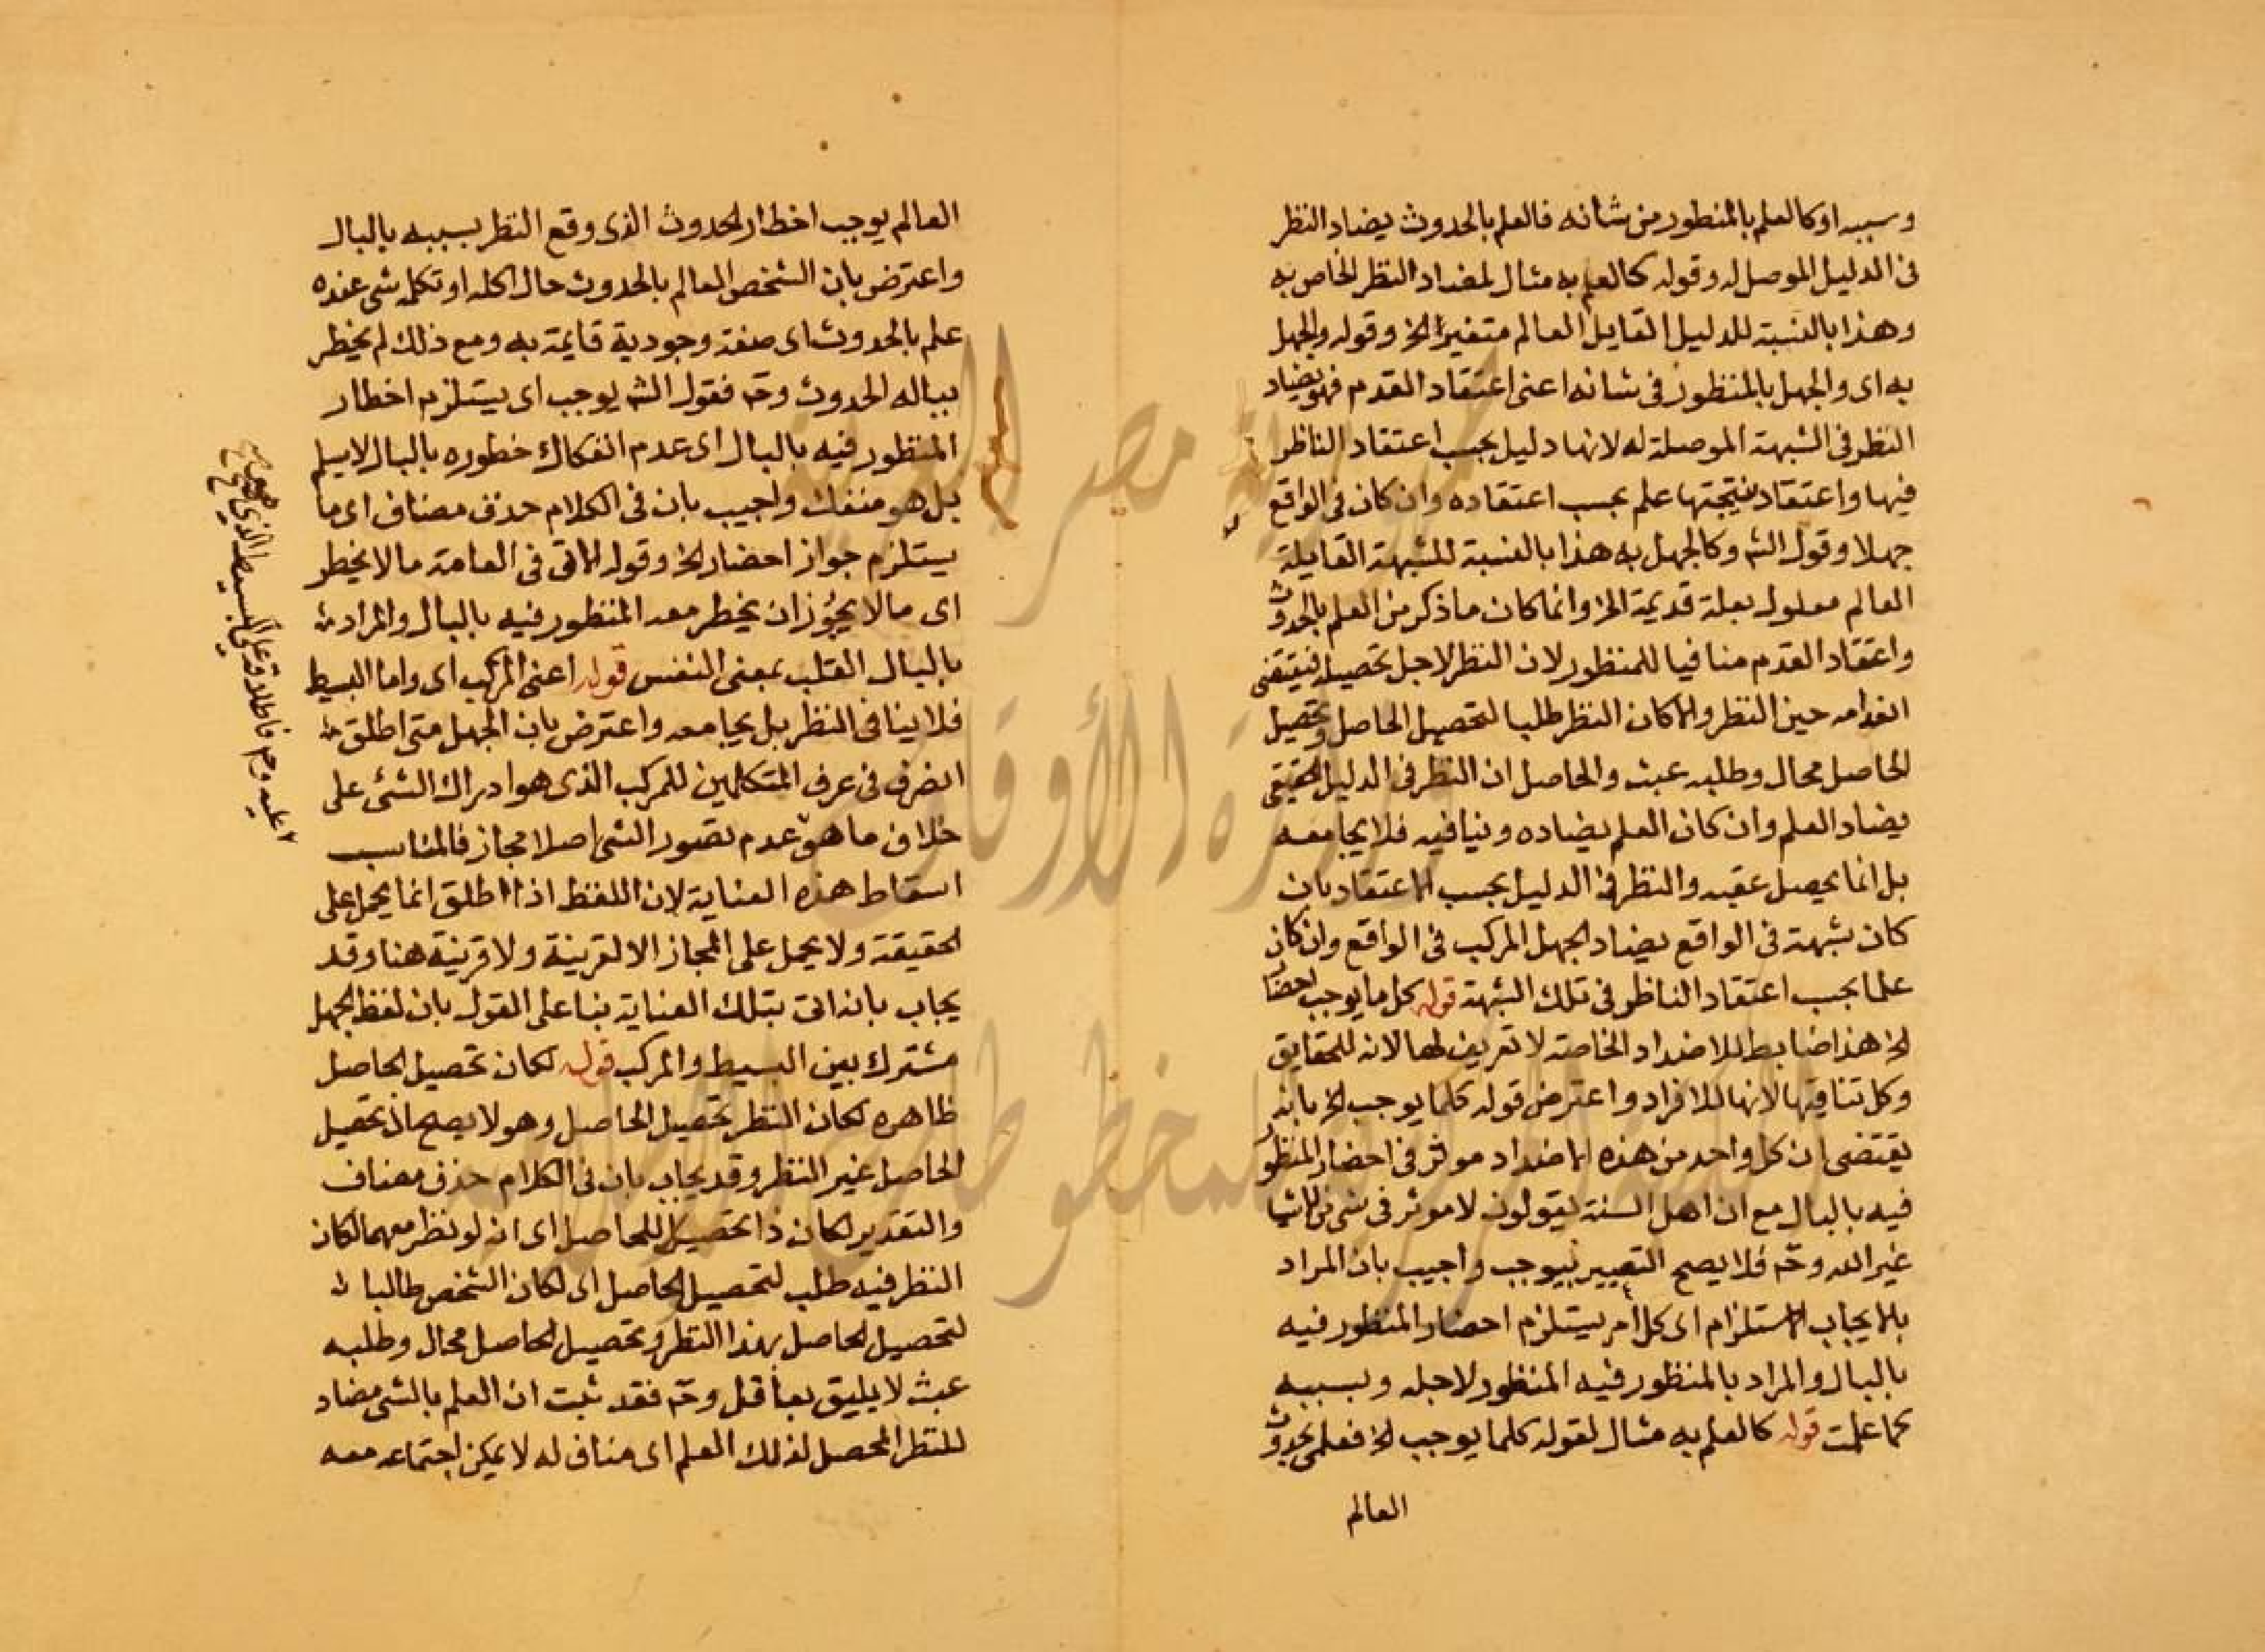 وسببه او كالعلم بالمنظور من شانه فالعلم بالحدوث يضاد النظر
فى الدليل الموصل له وقوله كالعلم به مثال لمضاد النظر الخاص به
وهذا بالنسبة للدليل القايل العالم متغير الخ وقوله والجهل
به اى والجهل بالمنظور فى شانه اعنى اعتقاد القدم فهو يضاد
النظر فى الشبهة الموصلة له لانها دليل بحسب اعتقاد الناظر
فيها واعتقاد نتيجتها علم بحسب اعتقاده وان كان فى الواقع
جهلا وقول الشه وكالجهل به هذا بالنسبة للشبهة القايلة
العالم معلول بعلة قديمة الخ وانما كان ما ذكر من العلم بالحدوث
واعتقاد القدم منافيا للمنظور لان النظر لاجل تحصيله فيقتضى
انعدامه حين النظر والا كان النظر طلبا لتحصيل الحاصل وتحصيل
الحاصل محال وطلبه عبث والحاصل ان النظر فى الدليل الحقيقى
يضاد العلم وان كان العلم يضاده وينافيه فلا يجامعه
بل انما يحصل عقبه والنظر فى الدليل بحسب الاعتقاد بان
كان شبهة فى الواقع يضاد الجهل المركب فى الواقع وان كان
علما بحسب اعتقاد الناظر فى تلك الشبهة قوله كل ما يوجب احضار
الخ هذا ضابط للاضداد الخاصة لا تعريف لها لانه للحقايق
وكل تنافيها لانها للافراد واعترض قوله كلما يوجب الخ بانه
يقتضى ان كل واحد من هذه الاضداد موثر فى احضار المنظور
فيه بالبال مع ان اهل السنة يقولون لا موثر فى شى من الاشيا
غير الله وحـ فلا يصح التعبير بيوجب واجيب بان المراد
بالايجاب الاستلزام اى كل امر يستلزم احضار المنظور فيه
بالبال والمراد بالمنظور فيه المنظور لاجله وبسببه
كما علمت قوله كالعلم به مثال لقوله كلما يوجب الخ فعلمى بحدوث
العالم
العالم يوجب اخطار الحدوث الذى وقع النظر بسببه بالبال
واعترض بان الشخص العالم بالحدوث حال اكله او تكلمه شى عنده
علم بالحدوث اى صفة وجودية قايمة به ومع ذلك لم يخطر
بباله الحدوث وحـ فقول الشه يوجب اى يستلزم اخطار
المنظور فيه بالبال اى عدم انفكاك خطوره بالبال لا يسلم
بل هو منفك واجيب بان فى الكلام حذف مضاف اى ما
يستلزم جواز احضار الخ وقوله الاتى فى العامة ما لا يخطر
اى ما لا يجوز ان يخطر معه المنظور فيه بالبال والمراد
بالبال القلب بمعنى النفس قوله اعنى المركب اى واما البسيط
فلا ينافى النظر بل يجامعه واعترض بان الجهل متى اطلق
انصرف فى عرف المتكلمين للمركب الذى هو ادراك الشئ على
خلاف ما هو عدم تصور الشى اصلا مجاز فالمناسب
اسقاط هذه العناية لان اللفظ اذا اطلق انما يحمل على
الحقيقة ولا يحمل على المجاز الا لقرينة ولا قرينة هنا وقد
يجاب بانه اتى بتلك العناية بنا على القول بان لفظ الجهل
مشترك بين البسيط والمركب قوله لكان تحصيل الحاصل
ظاهره لكان النظر تحصيل الحاصل وهو لا يصح اذ تحصيل
الحاصل غير النظر وقد يجاب بان فى الكلام حذف مضاف
والتقدير لكان ذا تحصيل للحاصل اى انه لو نظر معهما لكان
النظر فيه طلب لتحصيل الحاصل اى لكان الشخص طالبا
لتحصيل الحاصل بهذا النظر وتحصيل الحاصل محال وطلبه
عبث لا يليق بعاقل وحـ فقد ثبت ان العلم بالشى مضاد
للنظر المحصل لذلك العلم اى مناف له لا يمكن اجتماعه معه
عليه وحـ فاطلاقه على البسيط الذى هو
جمهورية مصر العربية
وزارة الأوقاف
المكتبة المركزية للمخطوطات الإسلامية